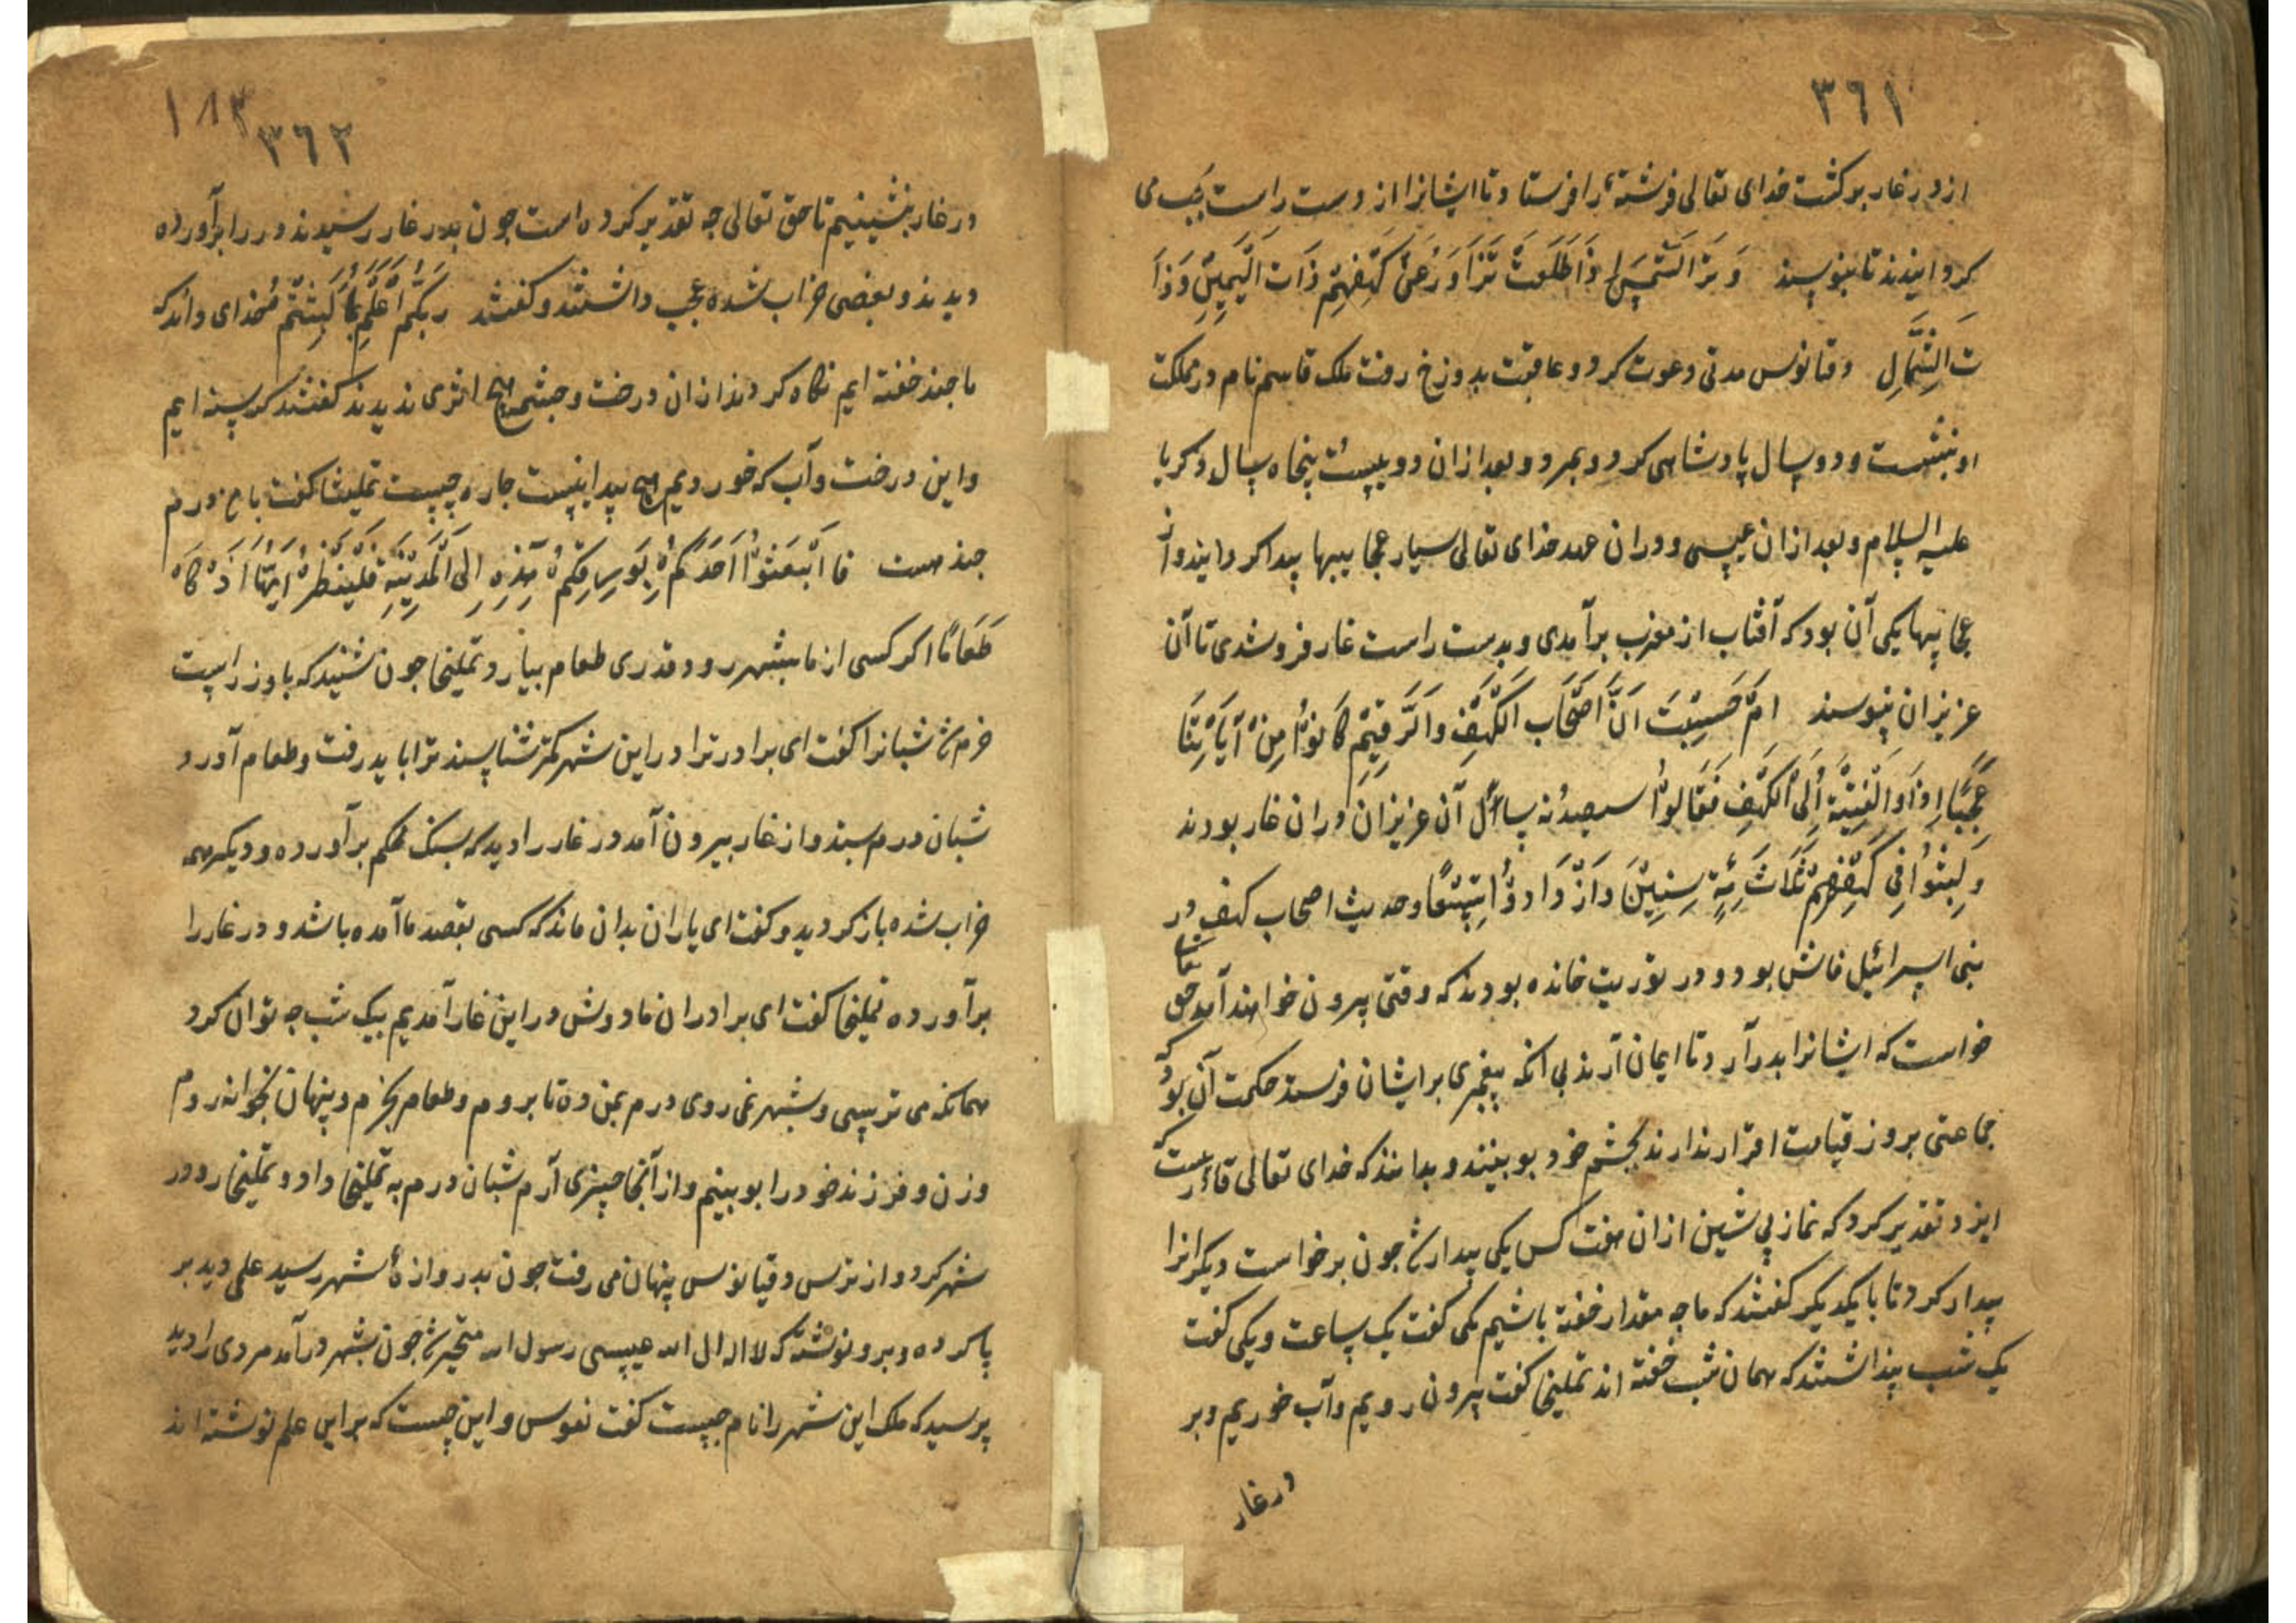 ٣٦١
از در غار برگشت خدای تعالی فرشتهٔ را فرستاد تا ایشانرا از دست راست بچپ می
کردانیدند تا نپوسند وَ تَرَ الشَّمسَ اِذَا طَلَعَتْ تَزَاوَرُ عَنْ کَهْفِهِمْ ذَاتَ الْیَمِیْنِ وَ ذَا
تَ الشِّمَالِ دقیانوس مدتی دعوت کرد و عاقبت بدوزخ رفت ملک قاسم نام در مملکت
او بنشست و دو سال پادشاهی کرد و بمرد و بعد از آن دویست پنجاه سال ذکریا
علیه السلام و بعد از ان عیسی و در ان عهد خدای تعالی بسیار عجایبها پیدا کردانید و از
عجایبها یکی آن بود که آفتاب از مغرب برآمدی و بدست راست غار فرو شدی تا آن
عزیزان نپوسند اَمْ حَسِبْتَ اَنَّ اَصْحَابَ الْکَهْفِ وَالرَّقِیْمِ کَانُوْا مِنْ آیَاتِنَا
عَجَبًا اِذْ اَوَ الْفِتْیَةُ اِلَی الْکَهْفِ فَقَالُوْا سیصد نه سال آن عزیزان در ان غار بودند
وَ لَبِثُوْا فِیْ کَهْفِهِمْ ثَلَاثَ مِئَةٍ سِنِیْنَ وَازْدَادُوْا تِسْعًا و حدیث اصحاب کهف در
بنی اسرائیل فاش بود و در توریت خوانده بودند که وقتی بیرون خواهند آمد حق تعا
خواست که ایشانرا بدرآرد تا ایمان آرند بی انکه پیغمبری بر ایشان فرستد حکمت آن بود که
جماعتی بروز قیامت اقرار ندارند بچشم خود بوبینند و بدانند که خدای تعالی قادرست که
ایزد تقدیر کرد که نماز پیشین از ان هفت کس یکی بیدار شد جون برخواست دیکرانرا
بیدار کرد تا با یکدیکر کفتند که ما چه مقدار خفته باشیم یکی کفت یک ساعت و یکی کفت
یک شب پنداشتند که همان شب خفته اند تملیخا کفت بیرون رویم و آب خوریم و بر
در غار
١٨٣
٣٦٢
در غار بنشینیم تا حق تعالی جه تقدیر کرده است جون بدر غار رسیدند در را برآورده
دیدند و بعضی خراب شده عجب داشتند و کفتند رَبُّکُمْ اَعْلَمُ بِمَا لَبِثْتُمْ خدای داند که
ما جند خفته ایم نکاه کردند از ان درخت و جشمه هیچ اثری ندیدند کفتند کرسنه ایم
و این درخت و آب که خوردیم هیچ پیدا نیست جاره چیست تملیخا کفت با من درم
جند هست فَابْعَثُوْا اَحَدَکُمْ بِوَرِقِکُمْ هٰذِهِ اِلَی الْمَدِیْنَةِ فَلْیَنْظُرْ اَیُّهَا اَزْکَا
طَعَامًا اکر کسی از ما بشهر رود قدری طعام بیارد تملیخا جون شنید که با وز راست
خرم شد شبانرا کفت ای برادر ترا در این شهر کمتر شناسند ترا باید رفت و طعام آورد
شبان درم بستد و از غار بیرون آمد در غار را دید که بسنک محکم برآورده و دیکر همه
خراب شده باز کردید و کفت ای یاران بدان ماند که کسی بقصد ما آمده باشد و در غار را
برآورده تملیخا کفت ای برادران ما دوش در این غار آمدیم بیک شب جه توان کرد
همانکه می ترسی و بشهر نمی روی درم بمن ده تا بروم و طعام بخرم و پنهان بخوانه روم
و زن و فرزند خود را بوبینم و از آنجا چیزی آرم شبان درم به تملیخا داد و تملیخا رو در
شهر کرد و از ترس دقیانوس پنهان می رفت جون بدروازهٔ شهر رسید علمی دید بر
پا کرده و برو نوشته که لا اله الا الله عیسی رسول الله متحیر شد جون بشهر درآمد مردی را دید
پرسید که ملک این شهر را نام جیست کفت نفوس و این چیست که بر این علم نوشته اند